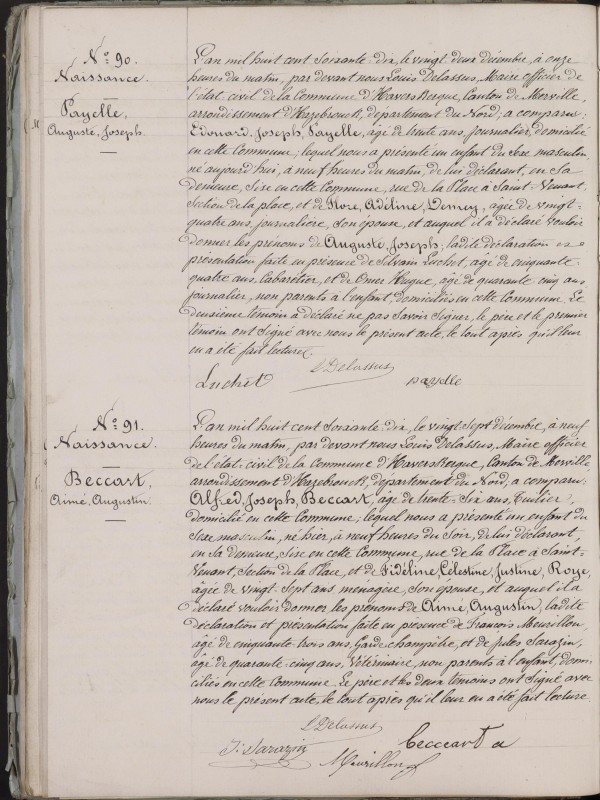 N° 90.
Naissance.
Payelle,
Auguste, Joseph.
L'an mil huit cent soixante-dix, le vingt deux décembre, à onze
heures du matin, par devant nous Louis Delassus, Maire officier de
l'état-civil de la Commune d'Haverskerque, Canton de Merville,
arrondissement d'Hazebrouck, département du Nord; a comparu:
Edouard, Joseph, Payelle, âgé de trente ans, journalier, domicilié
en cette Commune; lequel nous a présenté un enfant du sexe masculin,
né aujourd'hui, à neuf heures du matin, de lui déclarant, en sa
demeure, sise en cette Commune, rue de la Place à Saint-Venant,
Section de la place, et de Flore, Adéline, Demey, âgée de vingt-
quatre ans, journalière, son épouse, et auquel il a déclaré vouloir
donner les prénoms de Auguste, Joseph; ladite déclaration et
présentation faite en présence de Silvain Luchet, âgé de cinquante-
quatre ans, Cabaretier, et de Omer Hugue, âgé de quarante-cinq ans
journalier, non parents à l'enfant, domiciliés en cette Commune. Le
deuxième témoin a déclaré ne pas savoir signer, le père et le premier
témoin ont signé avec nous le présent acte, le tout après qu'il leur
en a été fait lecture.
L Delassus
Luchet payelle
N° 91.
Naissance.
Beccart,
Aimé, Augustin.
L'an mil huit cent soixante-dix, le vingt sept décembre, à neuf
heures du matin, par devant nous Louis Delassus, Maire officier
de l'état-civil de la Commune d'Haverskerque, Canton de Merville,
arrondissement d'Hazebrouck, département du Nord, a comparu:
Alfred, Joseph, Beccart, âgé de trente-six ans, Tuilier,
domicilié en cette Commune; lequel nous a présenté un enfant du
sexe masculin, né hier, à neuf heures du soir, de lui déclarant,
en sa demeure, sise en cette Commune, rue de la Place à Saint-
Venant, Section de la Place, et de Fidéline, Célestine, Justine, Roye,
âgée de vingt-sept ans, ménagère, son épouse, et auquel il a
déclaré vouloir donner les prénoms de Aimé, Augustin, ladite
déclaration et présentation faite en présence de François Meurillon,
âgé de cinquante-trois ans, Garde-champêtre, et de Jules Sarazin,
âgé de quarante-cinq ans, Vétérinaire, non parents à l'enfant, domi-
ciliés en cette Commune. Le père et les deux témoins ont signé avec
nous le présent acte, le tout après qu'il leur en a été fait lecture.
L Delassus
J. Sarazin Meurillon Beccart a